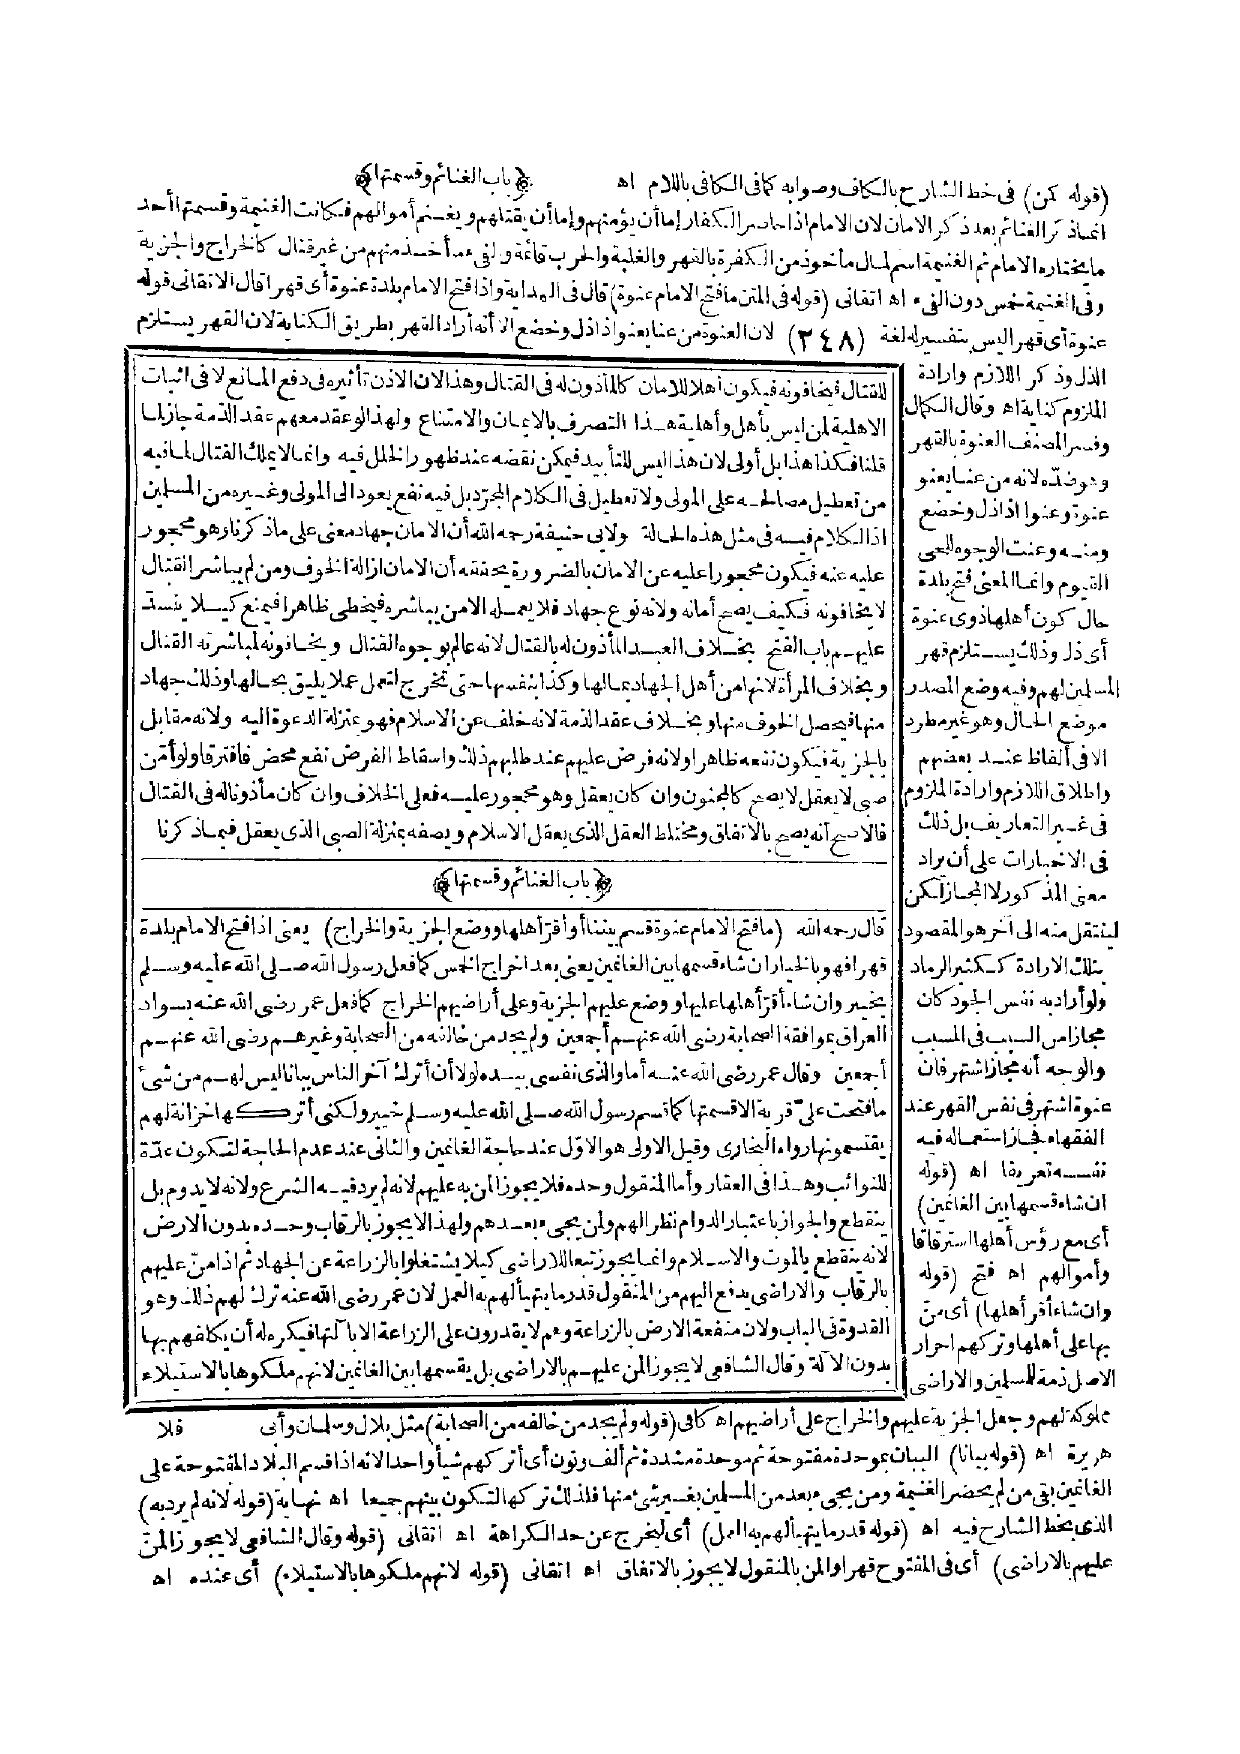 (قوله كمن) فى خط الشارح بالكاف وصوابه كما فى الكافى باللام اه ﴿باب الغنائم وقسمتها﴾
انما ذكر الغنائم بعد ذكر الامان لان الامام اذا حاصر الكفار إما أن يؤمنهم وإما أن يقتلهم ويغنم أموالهم فكانت الغنيمة وقسمتها أحد
ما يختاره الامام ثم الغنيمة اسم لمال مأخوذ من الكفرة بالقهر والغلبة والحرب قائمة والفىء ما أخذ منهم من غير قتال كالخراج والجزية
وفى الغنيمة خمس دون الفىء اه اتقانى (قوله فى المتن ما فتح الامام عنوة) قال فى الهداية واذا فتح الامام بلدة عنوة أى قهرا قال الاتقانى قوله
عنوة أى قهرا ليس بتفسير له لغة (٢٤٨) لان العنوة من عنا يعنو اذا ذل وخضع الا أنه أراد القهر بطريق الكناية لان القهر يستلزم
الذل وذكر اللازم وارادة
الملزوم كناية اه وقال الكمال
وفسر المصنف العنوة بالقهر
وهو ضده لانه من عنا يعنو
عنوة وعنوا اذا ذل وخضع
ومنه وعنت الوجوه للحى
القيوم وانما المعنى فتح بلدة
حال كون أهلها ذوى عنوة
أى ذل وذلك يستلزم قهر
المسلمين لهم وفيه وضع المصدر
موضع الحال وهو غير مطرد
الا فى ألفاظ عند بعضهم
واطلاق اللازم وارادة الملزوم
فى غير التعاريف بل ذلك
فى الاخبارات على أن يراد
معنى المذكور لا المجاز لكن
لينتقل منه الى آخر هو المقصود
بتلك الارادة ككثير الرماد
ولو أراد به نفس الجود كان
مجازا من السبب فى المسبب
والوجه أنه مجاز اشتهر فان
عنوة اشتهر فى نفس القهر عند
الفقهاء فجاز استعماله فيه
نفسه تعريفا اه (قوله
ان شاء قسمها بين الغانمين)
أى مع رؤس أهلها استرقاقا
وأموالهم اه فتح (قوله
وان شاء أقر أهلها) أى منّ
بها على أهلها وتركهم احرار
الاصل ذمة للمسلمين والاراضى
للقتال فيخافونه فيكون أهلا للامان كالمأذون له فى القتال وهذا لان الاذن تأثيره فى دفع المانع لا فى اثبات
الاهلية لمن ليس بأهل وأهلية هذا التصرف بالايمان والامتناع ولهذا لو عقد معهم عقد الذمة جاز لما
قلنا فكذا هذا بل أولى لان هذا ليس للتأبيد فيمكن نقضه عند ظهور الخلل فيه وانما لا يملك القتال لما فيه
من تعطيل مصالحه على المولى ولا تعطيل فى الكلام المجرد بل فيه نفع يعود الى المولى وغيره من المسلمين
اذ الكلام فيه فى مثل هذه الحالة ولابى حنيفة رحمه الله أن الامان جهاد معنى على ما ذكرنا وهو محجور
عليه عنه فيكون محجورا عليه عن الامان بالضرورة يحققه أن الامان ازالة الخوف ومن لم يباشر القتال
لا يخافونه فكيف يصح أمانه ولانه نوع جهاد فلا يعمله الا من يباشره فيخطى ظاهرا فيمنع كيلا ينسد
عليهم باب الفتح بخلاف العبد المأذون له بالقتال لانه عالم بوجوه القتال ويخافونه لمباشرته القتال
وبخلاف المرأة لانها من أهل الجهاد بمالها وكذا بنفسها حتى تخرج لتعمل عملا يليق بحالها وذلك جهاد
منها فيحصل الخوف منها وبخلاف عقد الذمة لانه خلف عن الاسلام فهو بمنزلة الدعوة اليه ولانه مقابل
بالجزية فيكون نفعه ظاهرا ولانه فرض عليهم عند طلبهم ذلك واسقاط الفرض نفع محض فافترقا ولو أمن
صبى لا يعقل لا يصح كالمجنون وان كان يعقل وهو محجور عليه فعلى الخلاف وان كان مأذونا له فى القتال
فالاصح أنه يصح بالاتفاق ومختلط العقل الذى يعقل الاسلام ويصفه بمنزلة الصبى الذى يعقل فيما ذكرنا
﴿باب الغنائم وقسمتها﴾
قال رحمه الله (ما فتح الامام عنوة قسم بيننا أو أقر أهلها ووضع الجزية والخراج) يعنى اذا فتح الامام بلدة
قهرا فهو بالخيار ان شاء قسمها بين الغانمين يعنى بعد اخراج الخمس كما فعل رسول الله صلى الله عليه وسلم
بخيبر وان شاء أقر أهلها عليها ووضع عليهم الجزية وعلى أراضيهم الخراج كما فعل عمر رضى الله عنه بسواد
العراق بموافقة الصحابة رضى الله عنهم أجمعين ولم يحمد من خالفه من الصحابة وغيرهم رضى الله عنهم
أجمعين وقال عمر رضى الله عنه أما والذى نفسى بيده لولا أن أترك آخر الناس ببانا ليس لهم من شىء
ما فتحت علىّ قرية الا قسمتها كما قسم رسول الله صلى الله عليه وسلم خيبر ولكنى أتركها خزانة لهم
يقتسمونها رواه البخارى وقيل الاولى هو الاول عند حاجة الغانمين والثانى عند عدم الحاجة لتكون عدّة
للنوائب وهذا فى العقار وأما المنقول وحده فلا يجوز المن به عليهم لانه لم يرد فيه الشرع ولانه لا يدوم بل
ينقطع والجواز باعتبار الدوام نظرا لهم ولمن يجىء بعدهم ولهذا لا يجوز بالرقاب وحده بدون الارض
لانه ينقطع بالموت والاسلام وانما يجوز تبعا للاراضى كيلا يشتغلوا بالزراعة عن الجهاد ثم اذا منّ عليهم
بالرقاب والاراضى يدفع اليهم من المنقول قدر ما يتهيأ لهم به العمل لان عمر رضى الله عنه ترك لهم ذلك وهو
القدوة فى الباب ولان منفعة الارض بالزراعة وهم لا يقدرون على الزراعة الا بآلتها فيكره له أن يكلفهم بها
بدون الآلة وقال الشافعى لا يجوز المن عليهم بالاراضى بل يقسمها بين الغانمين لانهم ملكوها بالاستيلاء
مملوكة لهم وجعل الجزية عليهم والخراج على أراضيهم اه كافى (قوله ولم يحمد من خالفه من الصحابة) مثل بلال وسلمان وأبى فلا
هريرة اه (قوله ببانا) الببان بموحدة مفتوحة ثم موحدة مشددة ثم ألف ونون أى أتركهم شيأ واحدا لانه اذا قسم البلاد المفتوحة على
الغانمين بقى من لم يحضر الغنيمة ومن يجىء بعد من المسلمين بغير شئ منها فلذلك تركها لتكون بينهم جميعا اه نهاية (قوله لانه لم يرد به)
الذى بخط الشارح فيه اه (قوله قدر ما يتهيأ لهم به العمل) أى ليخرج عن حد الكراهة اه اتقانى (قوله وقال الشافعى لا يجوز المن
عليهم بالاراضى) أى فى المفتوح قهرا والمن بالمنقول لا يجوز بالاتفاق اه اتقانى (قوله لانهم ملكوها بالاستيلاء) أى عنده اه